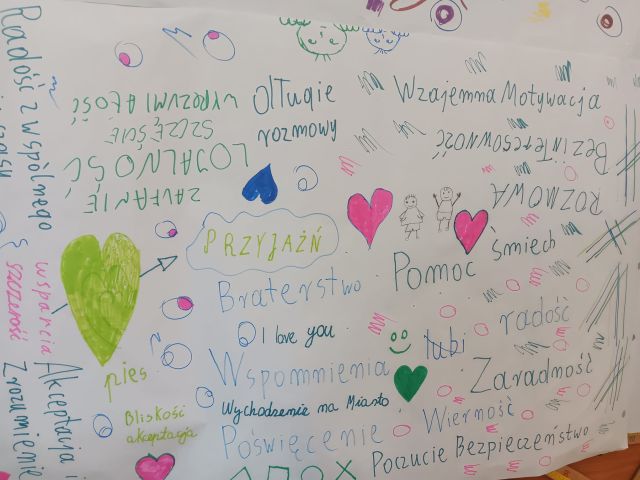 Radość z wspólnego
wsparcia
szczerość
Akceptacja i
Zrozumienie
WYROZUMIAŁOŚĆ
SZCZĘŚCIE
LOJALNOŚĆ
ZAUFANIE
Dłługie
rozmowy
Wzajemna Motywacja
Bezinteresowność
ROZMOWA
PRZYJAŹŃ
Pomoc
śmiech
Braterstwo
I love you
radość
lubi
Wspomnienia
Zaradność
pies
Wychodzenie na Miasto
Bliskość
akceptacja
Wierność
Poświęcenie
Poczucie Bezpieczeństwo